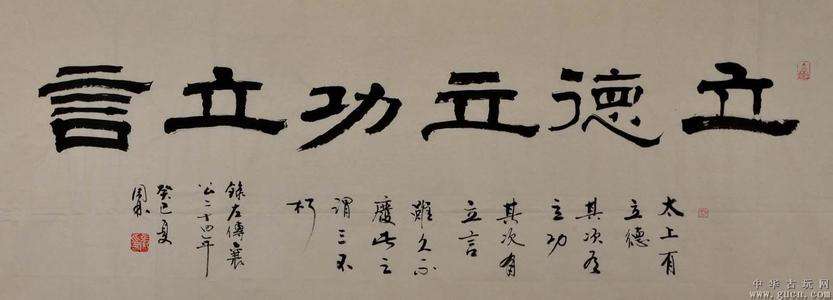 立德立功立言
太上有
立德
其次有
立功
其次有
立言
雖久不
廢此之
謂三不
朽
錄左傳襄
公二十四年
癸巳夏
中华古玩网
www.gucn.com